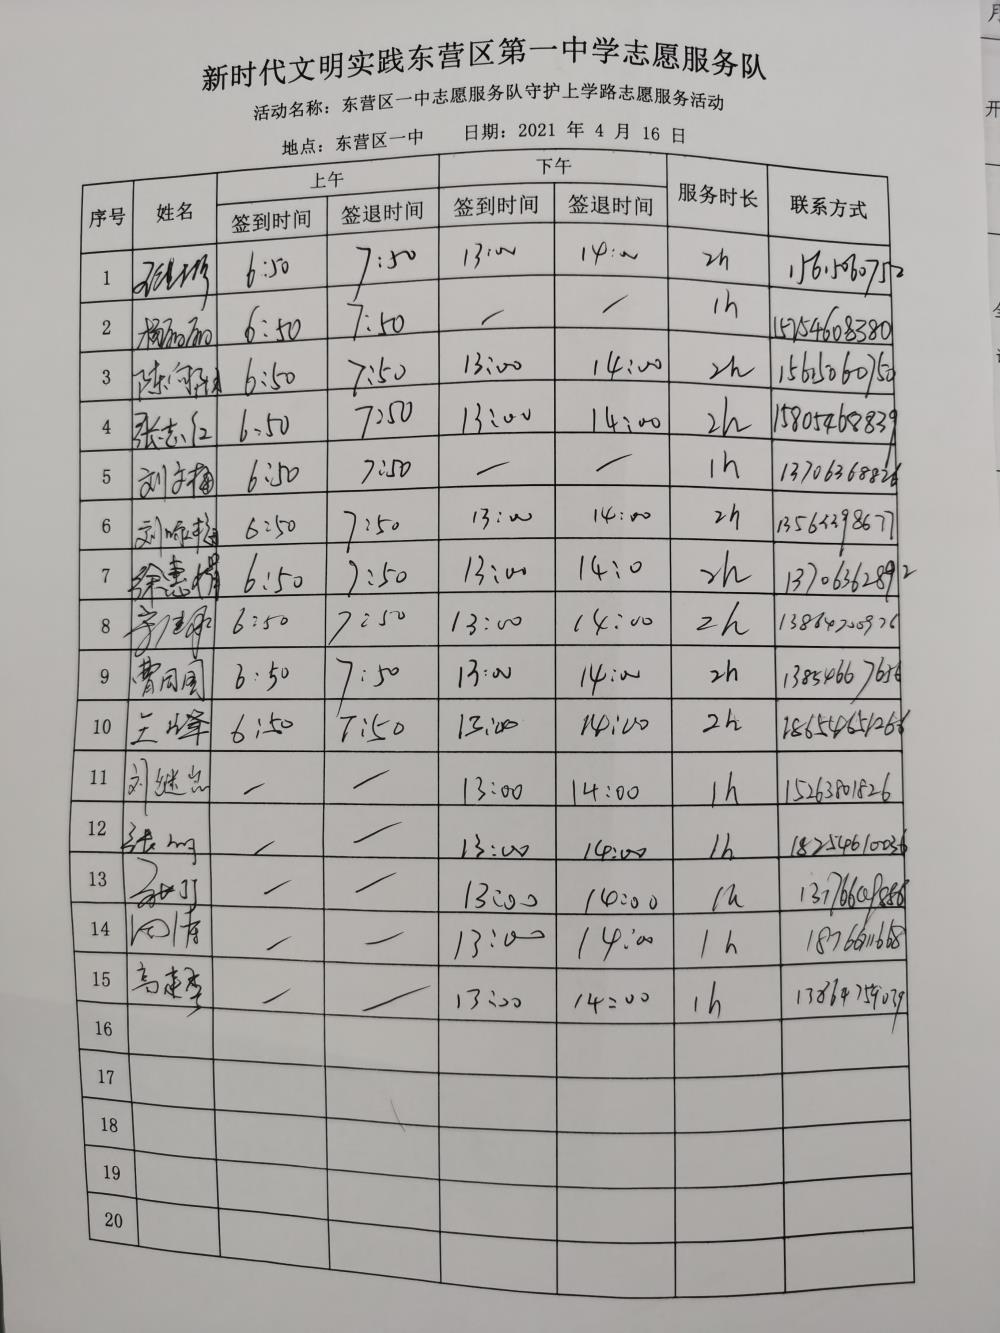 新时代文明实践东营区第一中学志愿服务队
活动名称：东营区一中志愿服务队守护上学路志愿服务活动
地点：东营区一中 日期：2021 年 4 月 16 日
序号 姓名 上午 下午 服务时长 联系方式
签到时间 签退时间 签到时间 签退时间
1 6:50 7:50 13:00 14:00 2h
2 6:50 7:50 — — 1h 15254608380
3 6:50 7:50 13:00 14:00 2h 15615060750
4 张志红 6:50 7:50 13:00 14:00 2h 15805468839
5 刘文梅 6:50 7:50 — — 1h 13706368826
6 6:50 7:50 13:00 14:00 2h 13563398677
7 徐惠娟 6:50 7:50 13:00 14:0 2h 13706362892
8 6:50 7:50 13:00 14:00 2h
9 曹同国 6:50 7:50 13:00 14:00 2h 13854667656
10 6:50 7:50 13:00 14:00 2h 18655465266
11 刘继忠 — — 13:00 14:00 1h 15263801826
12 — — 13:00 14:00 1h 18254610036
13 — — 13:00 14:00 1h
14 — — 13:00 14:00 1h 18766611668
15 — — 13:00 14:00 1h 13864759039
16
17
18
19
20